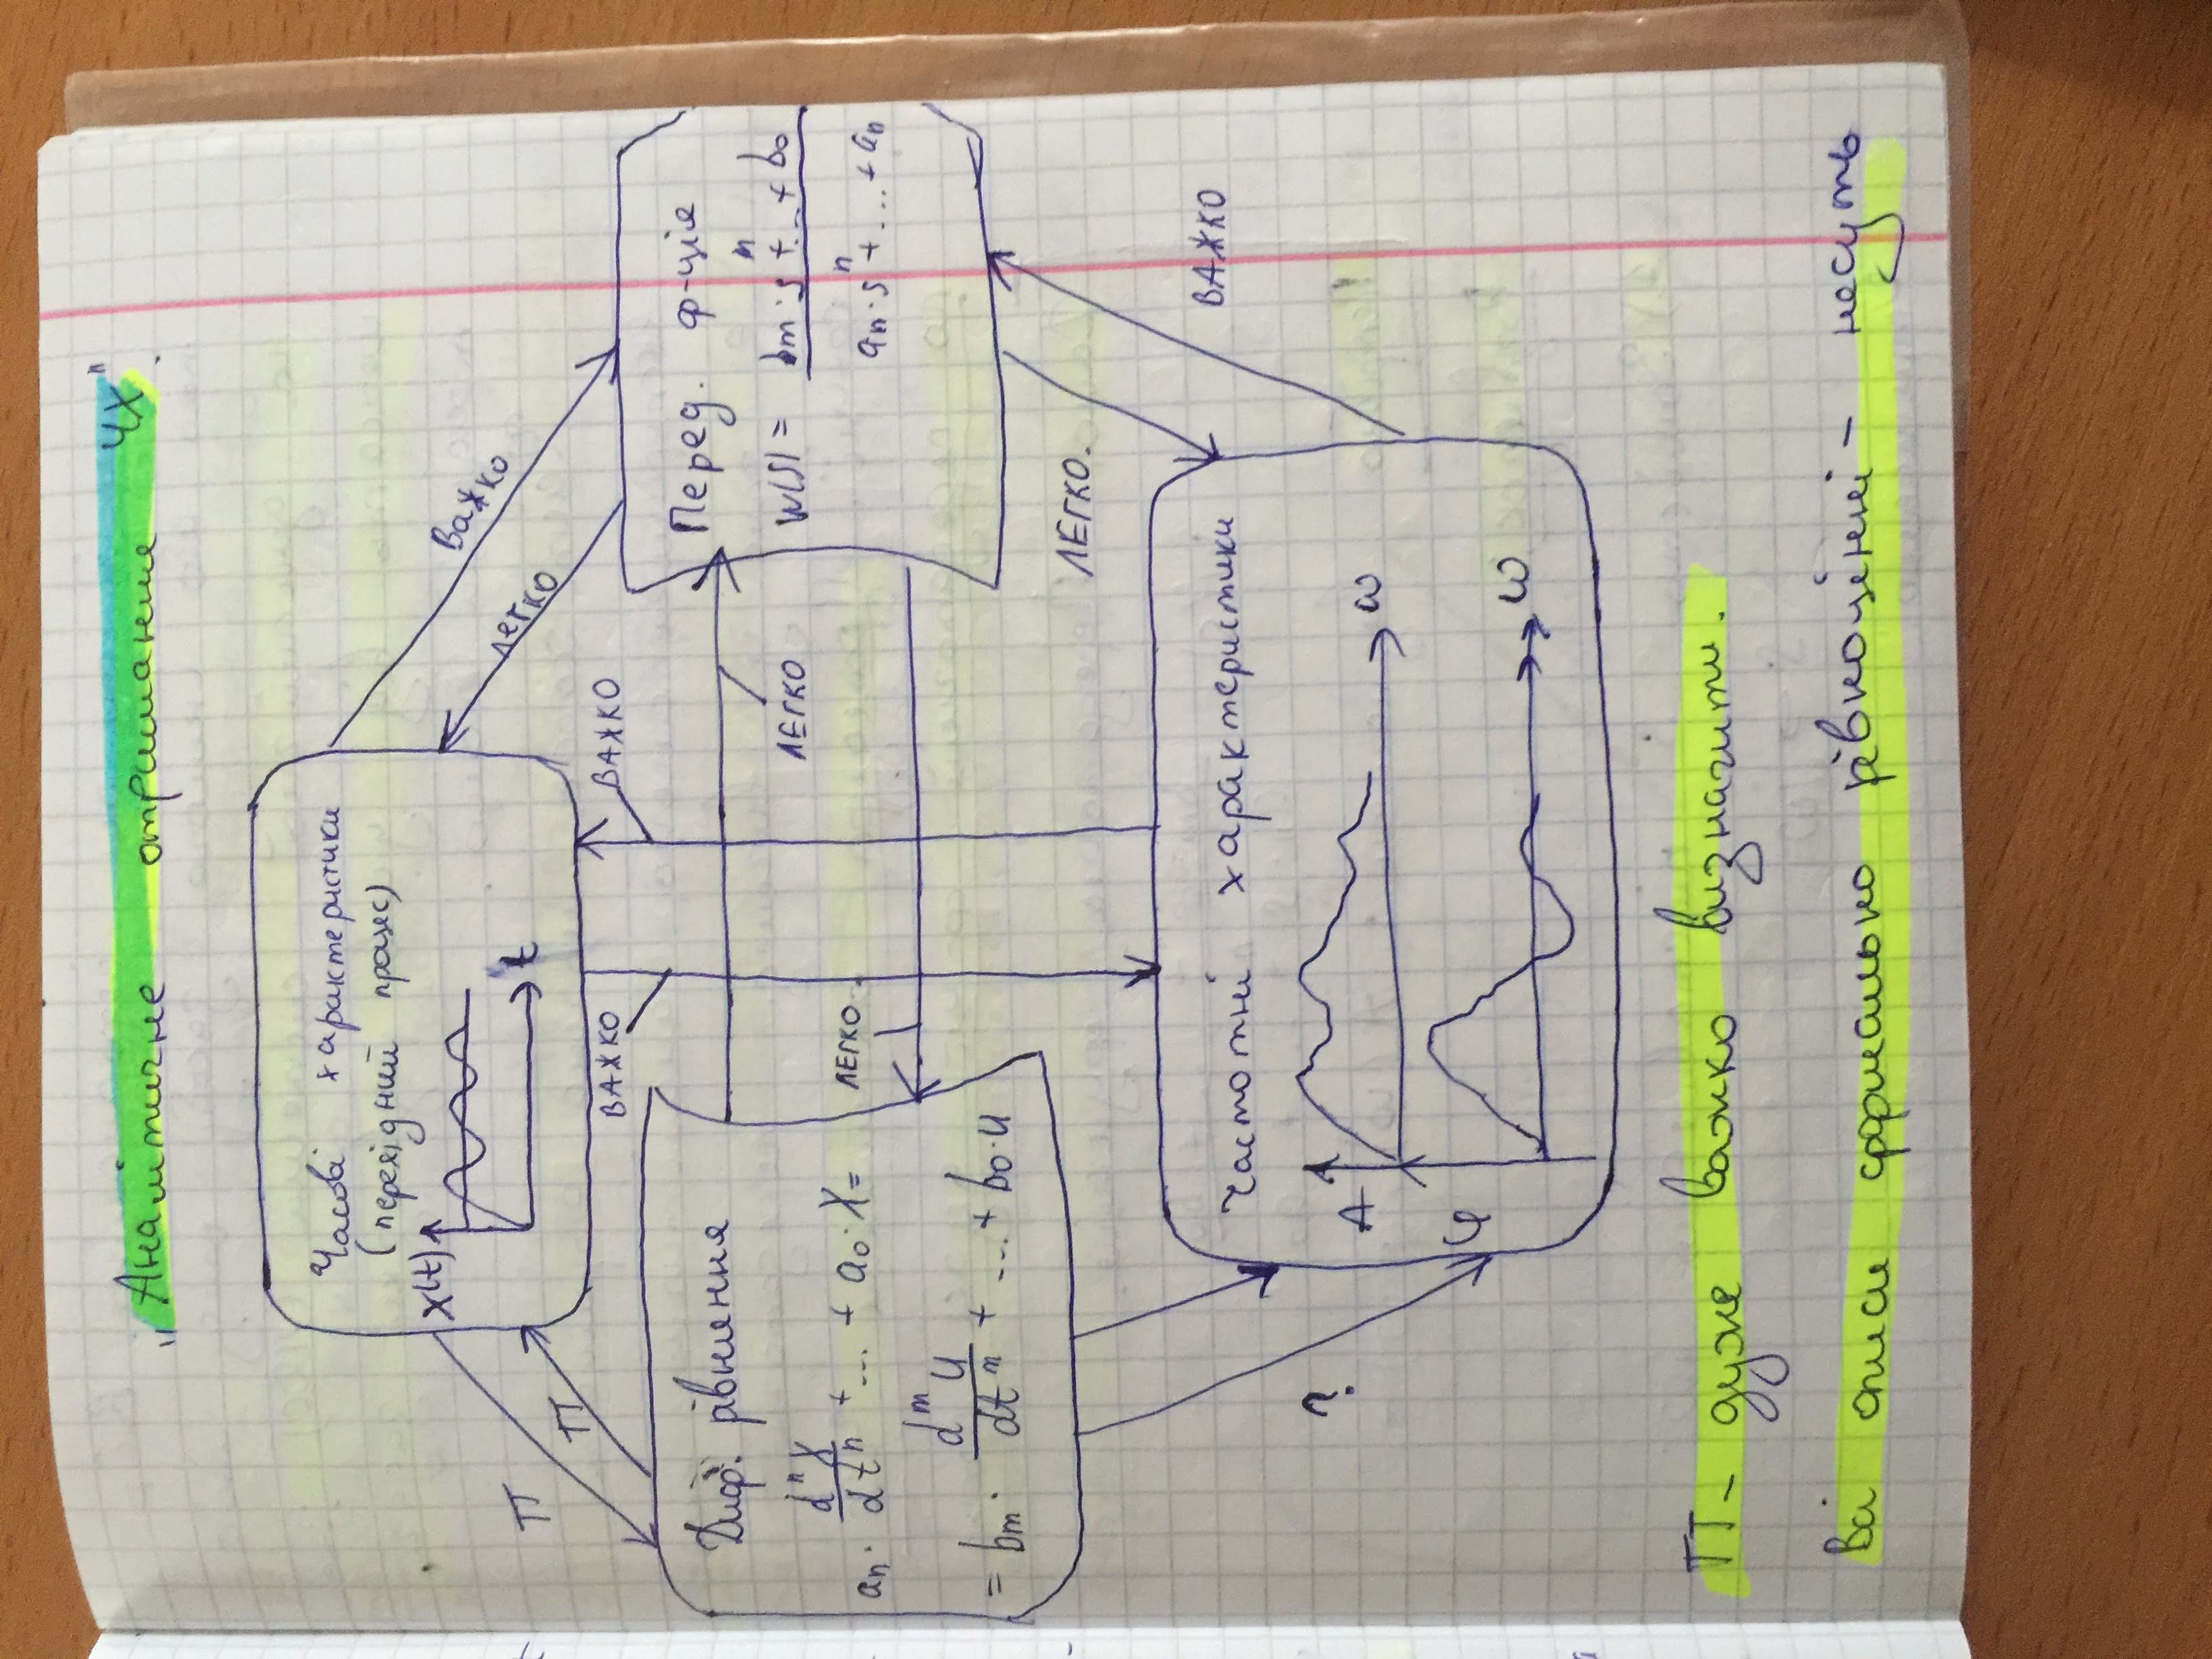 „Аналітичне отримання ЧХ".
Часові характеристики
(перехідний процес)
X(t)
t
Важко
легко
ТТ
ТТ
ВАЖКО
ВАЖКО
Диф. рівняння
aₙ · dⁿX/dtⁿ + ... + a₀ · X =
= bₘ · dᵐu/dtⁿ + ... + b₀ · u
ЛЕГКО
ЛЕГКО.
Перед. ф-ція
W(S) = bₘ · sⁿ + ... + b₀
aₙ · sⁿ + ... + aₙ
ЛЕГКО.
ВАЖКО
?
Частотні характеристики
A
ω
φ
ω
ТТ – дуже важко визначити.
Всі описи формально рівноцінні – несуть